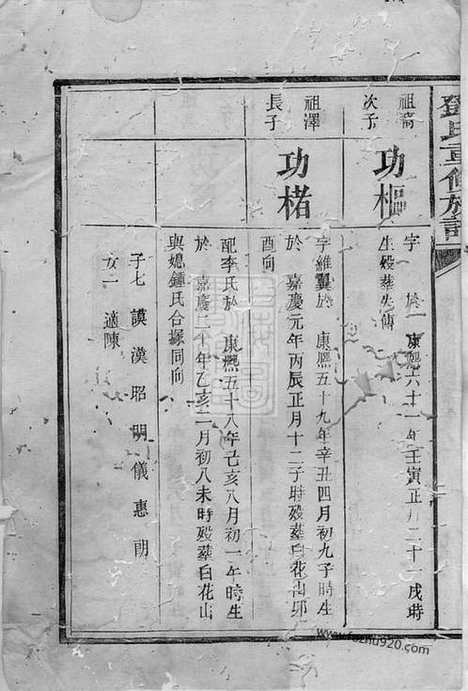 鄧氏重修族譜
祖裔
次子
功樞
字 於 康熙六十一年壬寅正月二十一戌時
生殁葬失傳
祖澤
長子
功楮
字維翼於 康熙五十九年辛丑四月初九子時生
於 嘉慶元年丙辰正月十二子時殁葬白花山卯
酉向
配李氏於 康熙五十八年己亥八月初一午時生
於 嘉慶二十年乙亥二月初八未時殁葬白花山
與媳鍾氏合塚同向
子七 謨 漢 昭 明 儀 惠 朝
女一 適陳
www.fozhu920.com